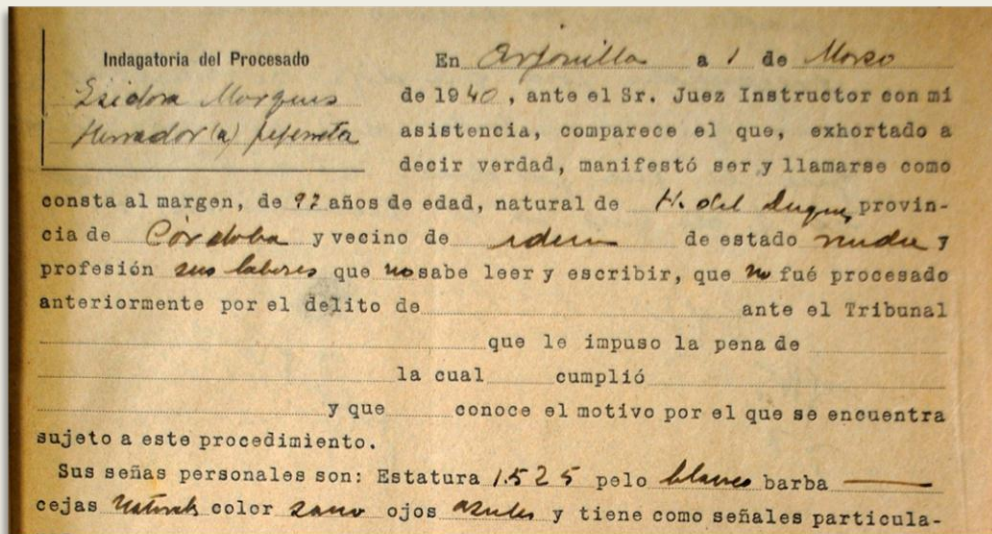 Indagatoria del Procesado
Isidora Marques
Herrador (a)
En Arjonilla a 1 de Marzo
de 1940, ante el Sr. Juez Instructor con mi
asistencia, comparece el que, exhortado a
decir verdad, manifestó ser y llamarse como
consta al margen, de 92 años de edad, natural de H. del Duque, provin-
cia de Córdoba y vecino de idem de estado viuda y
profesión sus labores que no sabe leer y escribir, que no fué procesado
anteriormente por el delito de ante el Tribunal
que le impuso la pena de
la cual cumplió
y que conoce el motivo por el que se encuentra
sujeto a este procedimiento.
Sus señas personales son: Estatura 1.525 pelo blanco barba —
cejas naturales color sano ojos azules y tiene como señales particula-